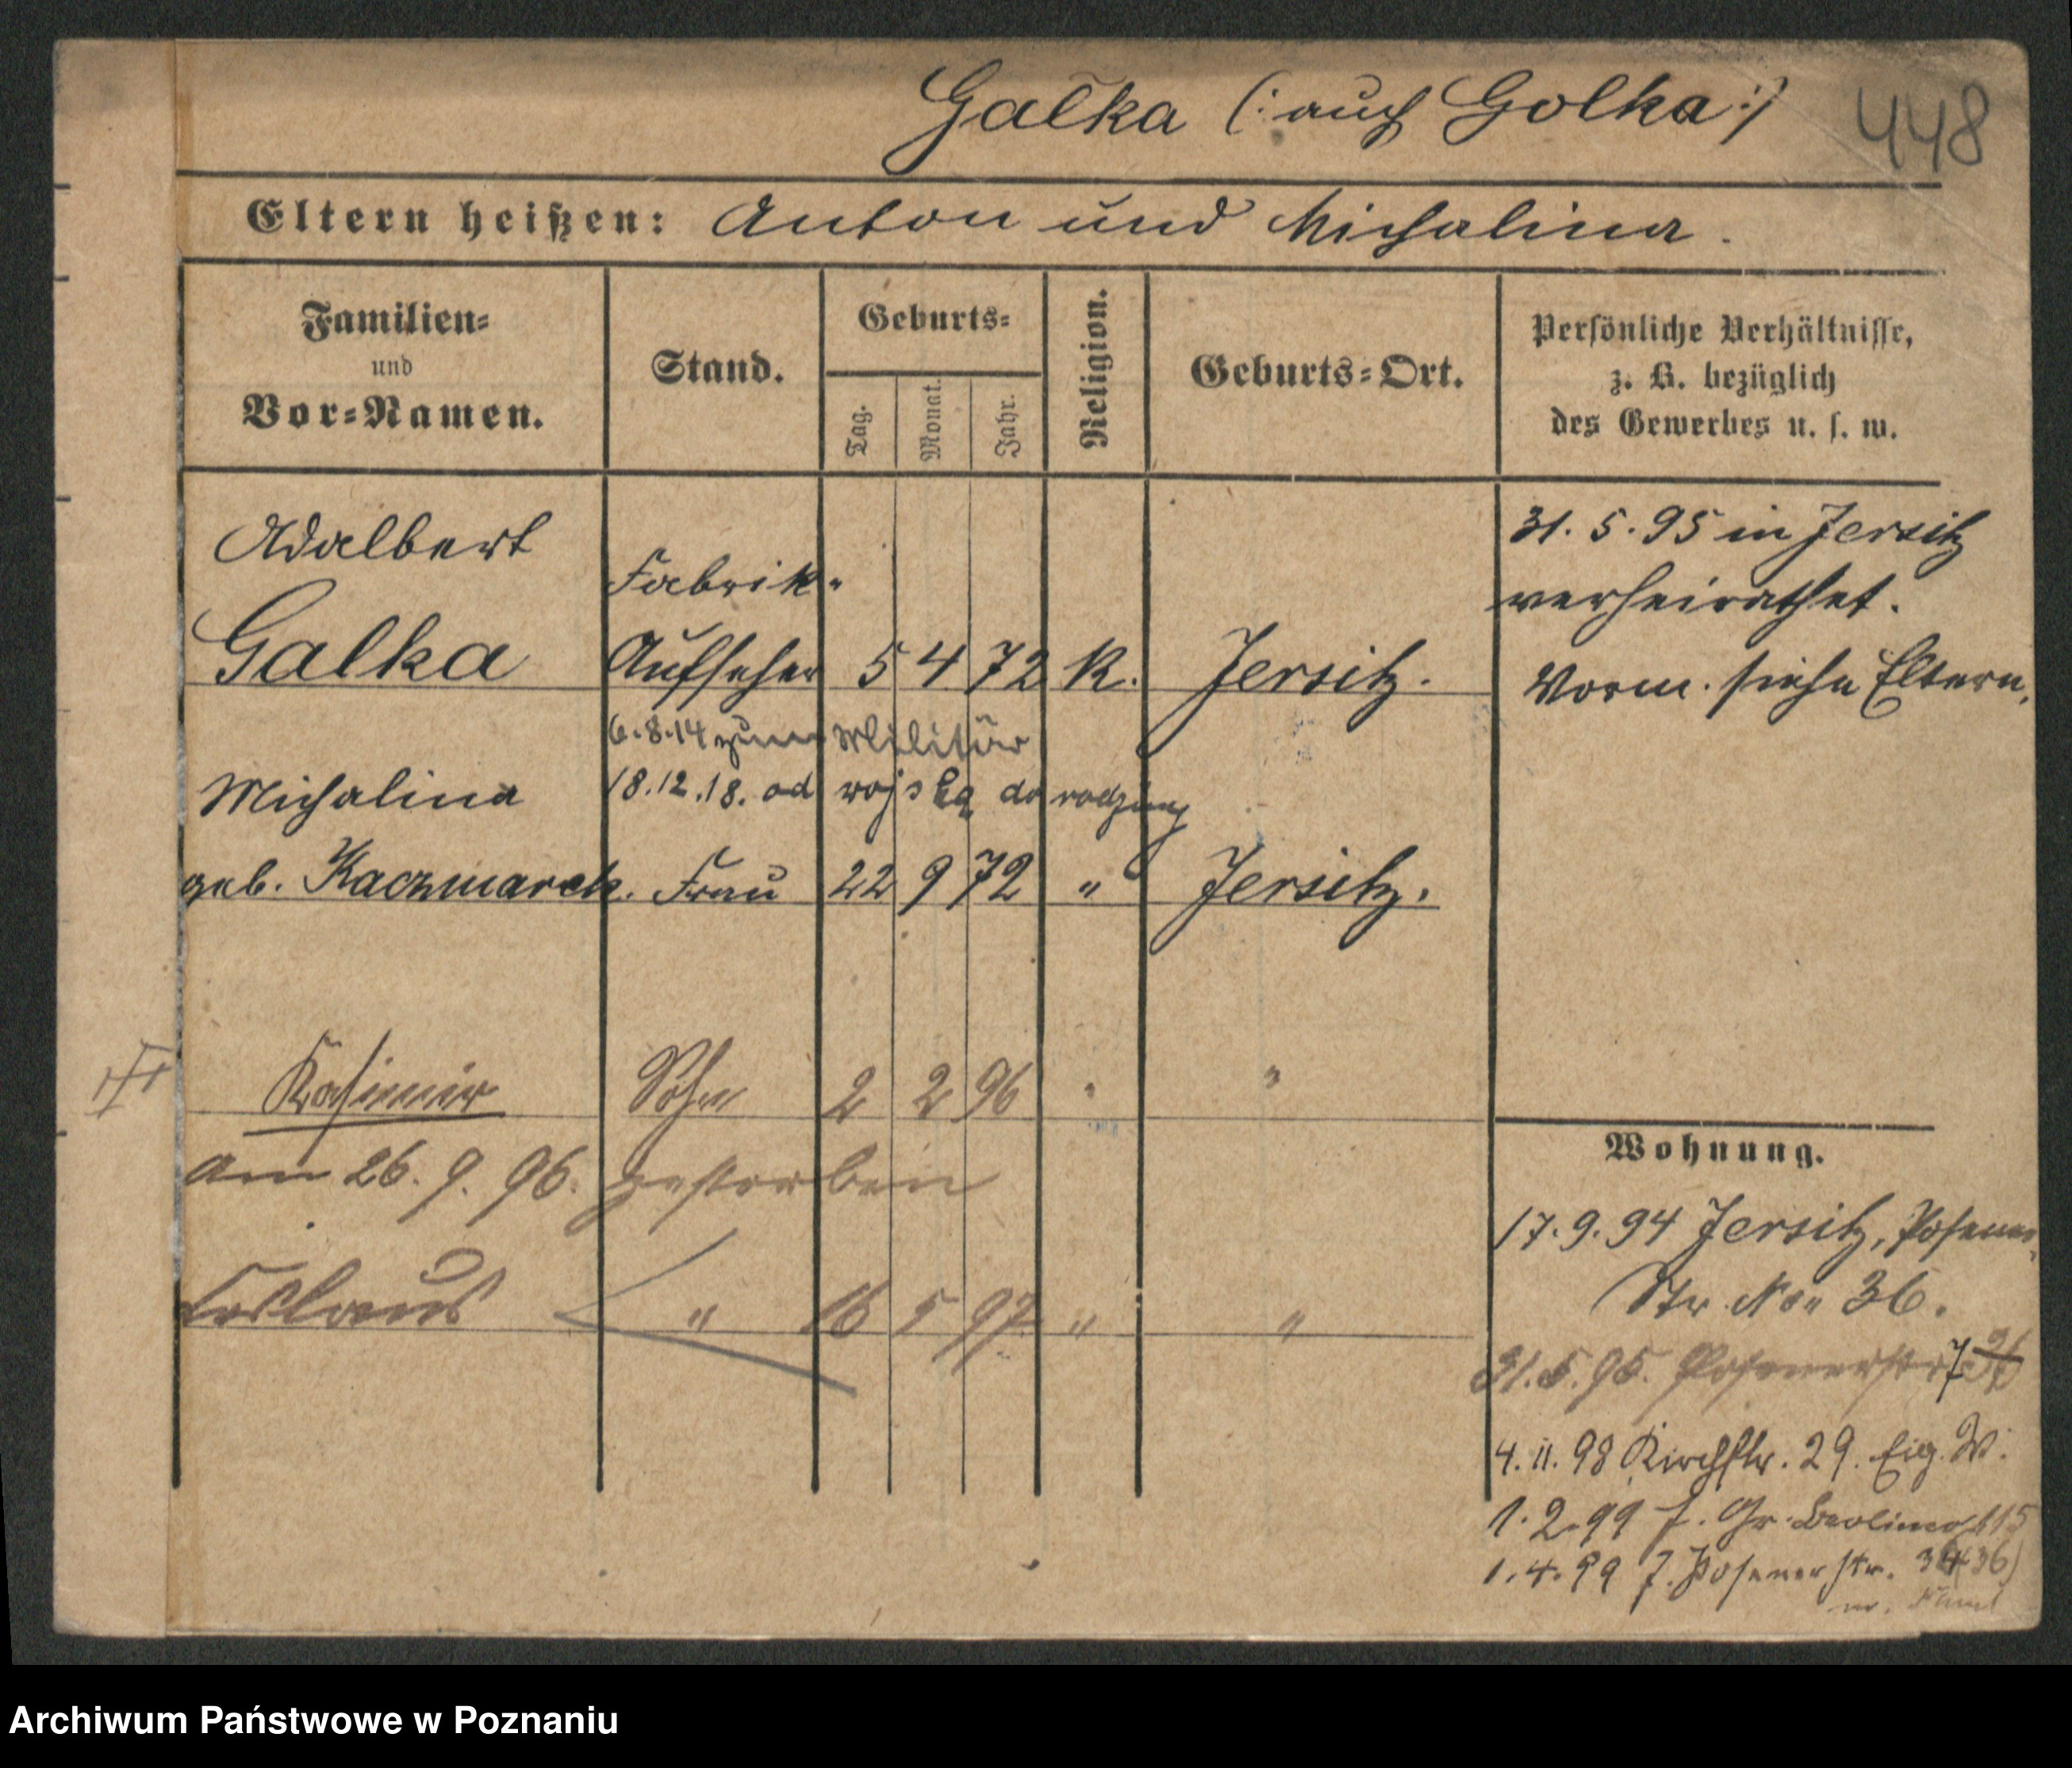 Gałka (: auch Golka :)
448
Eltern heißen: Anton und Michalina.
Familien= und Vor=Namen.
Stand.
Geburts=
Tag.
Monat.
Jahr.
Religion.
Geburts=Ort.
Persönliche Verhältnisse,
z. B. bezüglich
des Gewerbes u. s. w.
Adalbert
Galka
Fabrik-
Aufseher 5 4 72 K. Jersitz.
31. 5. 95 in Jersitz
verheirathet.
Vorm. siehe Eltern.
6.8.14 zum Militär
18.12.18. od wojska do rodziny
Michalina
geb. Kaczmarek. Frau 22 9 72 " Jersitz.
Kasimir Sohn 2 2 96 " "
am 26. 9. 96. gestorben
" 16 5 97 " "
Wohnung.
17. 9. 94 Jersitz, Posener
Str. No. 36.
31. 5. 95. Posenerstr. 7
4. 11. 98 Kirchstr. 29. Eig. W.
1. 2. 99 J. Gr. Berlinerstr 115
1. 4. 99 J. Posenerstr. 34 (36)
Archiwum Państwowe w Poznaniu